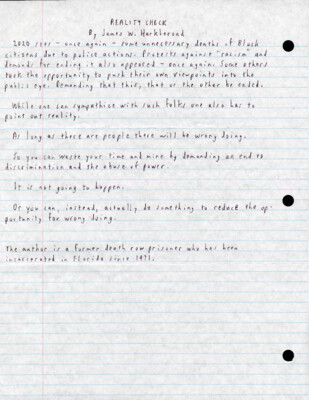 REALITY CHECK
By James W. Harkleroad
2020 sees - once again - some unnecessary deaths of Black
citizens due to police actions. Protests against "racism" and
demands for ending it also appeared - once again. Some others
took the opportunity to push their own viewpoints into the
public eye. Demanding that this, that or the other be ended.
While one can sympathize with such folks one also has to
point out reality.
As long as there are people there will be wrong doing.
So you can waste your time and mine by demanding an end to
discrimination and the abuse of power.
It is not going to happen.
Or you can, instead, actually do something to reduce the op-
portunity for wrong doing.
The author is a former death row prisoner who has been
incarcerated in Florida since 1971.